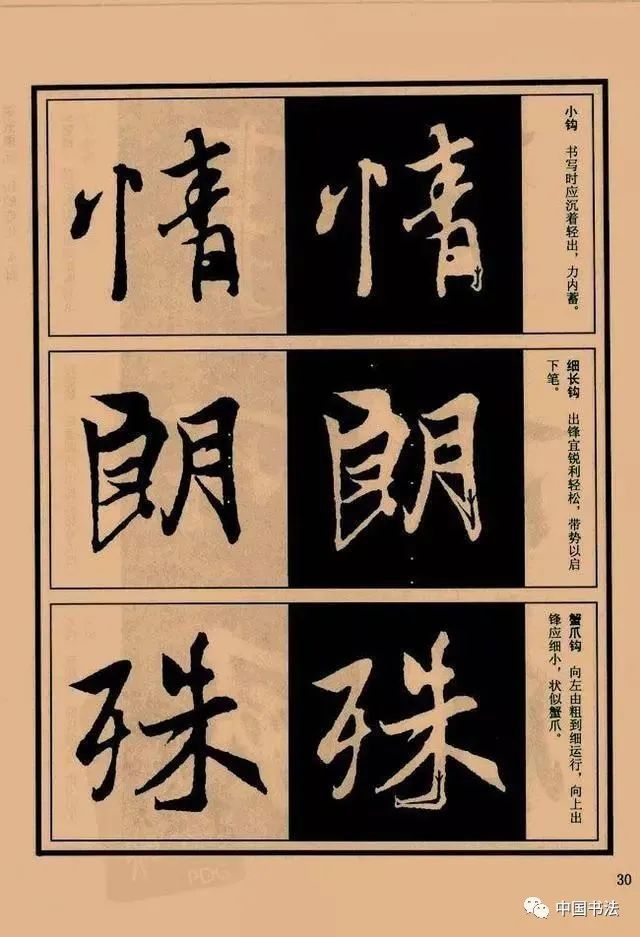 情
情
小钩　书写时应沉着轻出，力内蓄。
朗
朗
细长钩　出锋宜锐利轻松，带势以启
下笔。
殊
殊
蟹爪钩　向左由粗到细运行，向上出
锋应细小，状似蟹爪。
30
中国书法